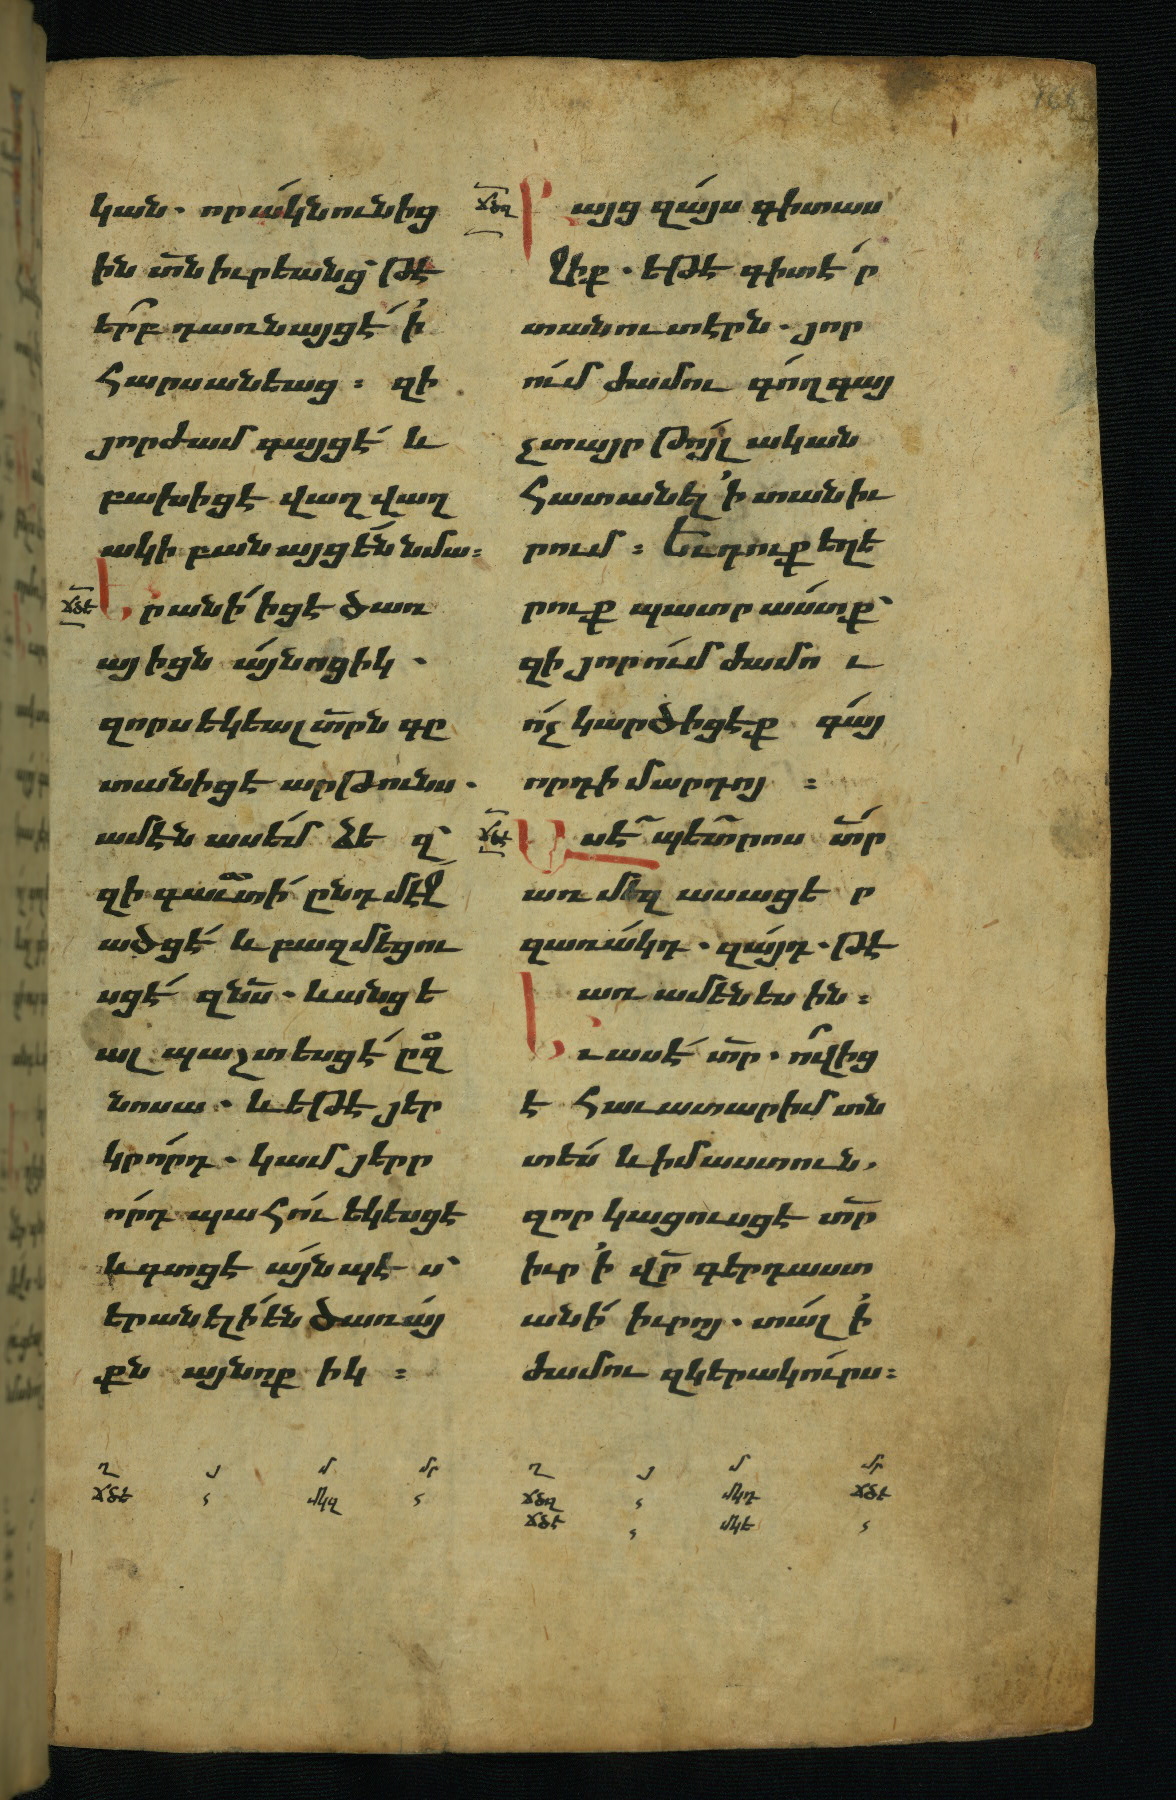 կան. որ ակնունից

ին տն իւրեանց՝ թէ

երբ դառնայցէ ՛ի

հարսանեաց : զի

յորժամ գայցէ և

բախիցէ վաղվաղ

ակի բանայցեն նմա :

ճծե Երանի իցէ ծառ

այիցն այնոցիկ .

զորս եկեալ տրն գը

տանիցէ արթունս .

ամէն ասեմ ձե զ՝

զի գաւտի ընդ մէջ

ածցէ և բազմեցու

սցէ զնս . և անցե

ալ պաշտեսցէ ըզ

նոսա . և եթէ յեր

կրորդ . կամ յերր

որդ պահու եկեսցէ

և գտցէ այնպէ ս՝

երանելի են ծառայ

քն այնոքիկ :

ճծզ Բայց զայս գիտաս

ջիք . եթէ գիտէր

տանուտէրն . յոր

ում ժամու գող գայ

չտայր թոյլ ական

հատանել ՛ի տան իւ

րում : Եւ դուք եղե

րուք պատրաստք՝

զի յորում ժամու

ոչ կարծիցէք գայ

որդի մարդոյ :

ճծէ Ասէ պետրոս տր

առ մեզ ասացեր

զառակդ . զայդ . թէ

առ ամենեսին :

Եւ ասէ տր . ո՞վ իցէ

է հաւատարիմ տն

տես և իմաստուն,

զոր կացուսցէ տր

իւր ՛ի վր գերդաստ

անի իւրոյ . տալ ՛ի

ժամու զկերակուրս :

ղ յ մ մր

ճծե ՟ մկգ ՟

ղ յ մ մր

ճծզ ՟ մկդ ճծէ

ճծէ ՟ մկե ՟